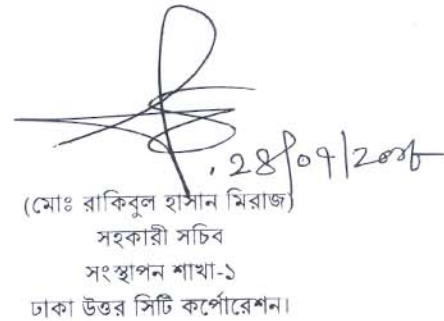 ২৪/০৭/২০২৮
(মোঃ রাকিবুল হাসান মিরাজ)
সহকারী সচিব
সংস্থাপন শাখা-১
ঢাকা উত্তর সিটি কর্পোরেশন।